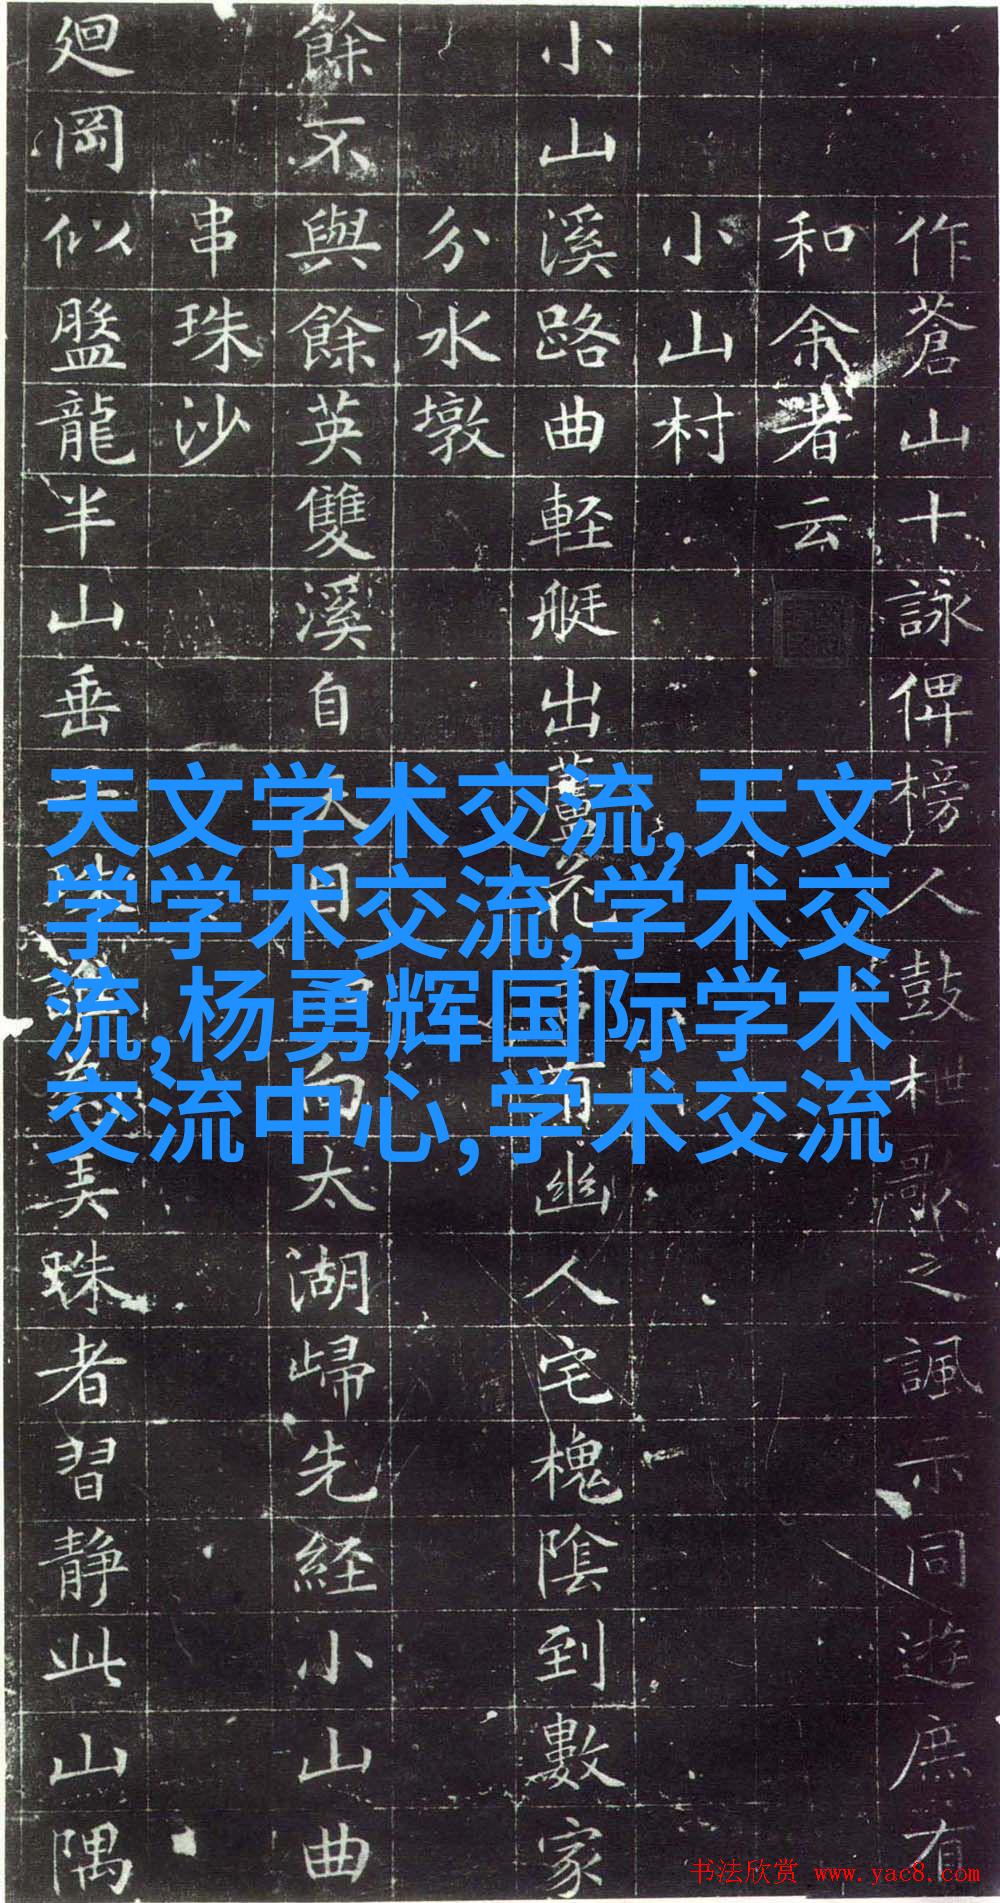 作蒼山十詠俾榜人鼓枻歌之諷示同遊庶有
和余者云
小山村
小山溪路曲軽艇出蘆花有幽人宅槐陰到數家
分水墩
餘不與餘英雙溪自向太湖歸先経小山曲
串珠沙
廻岡似盤龍半山垂美珠者習静此山隅
天文学术交流,天文
学学术交流,学术交
流,杨勇辉国际学术
交流中心,学术交流
书法欣赏 www.yac8.com